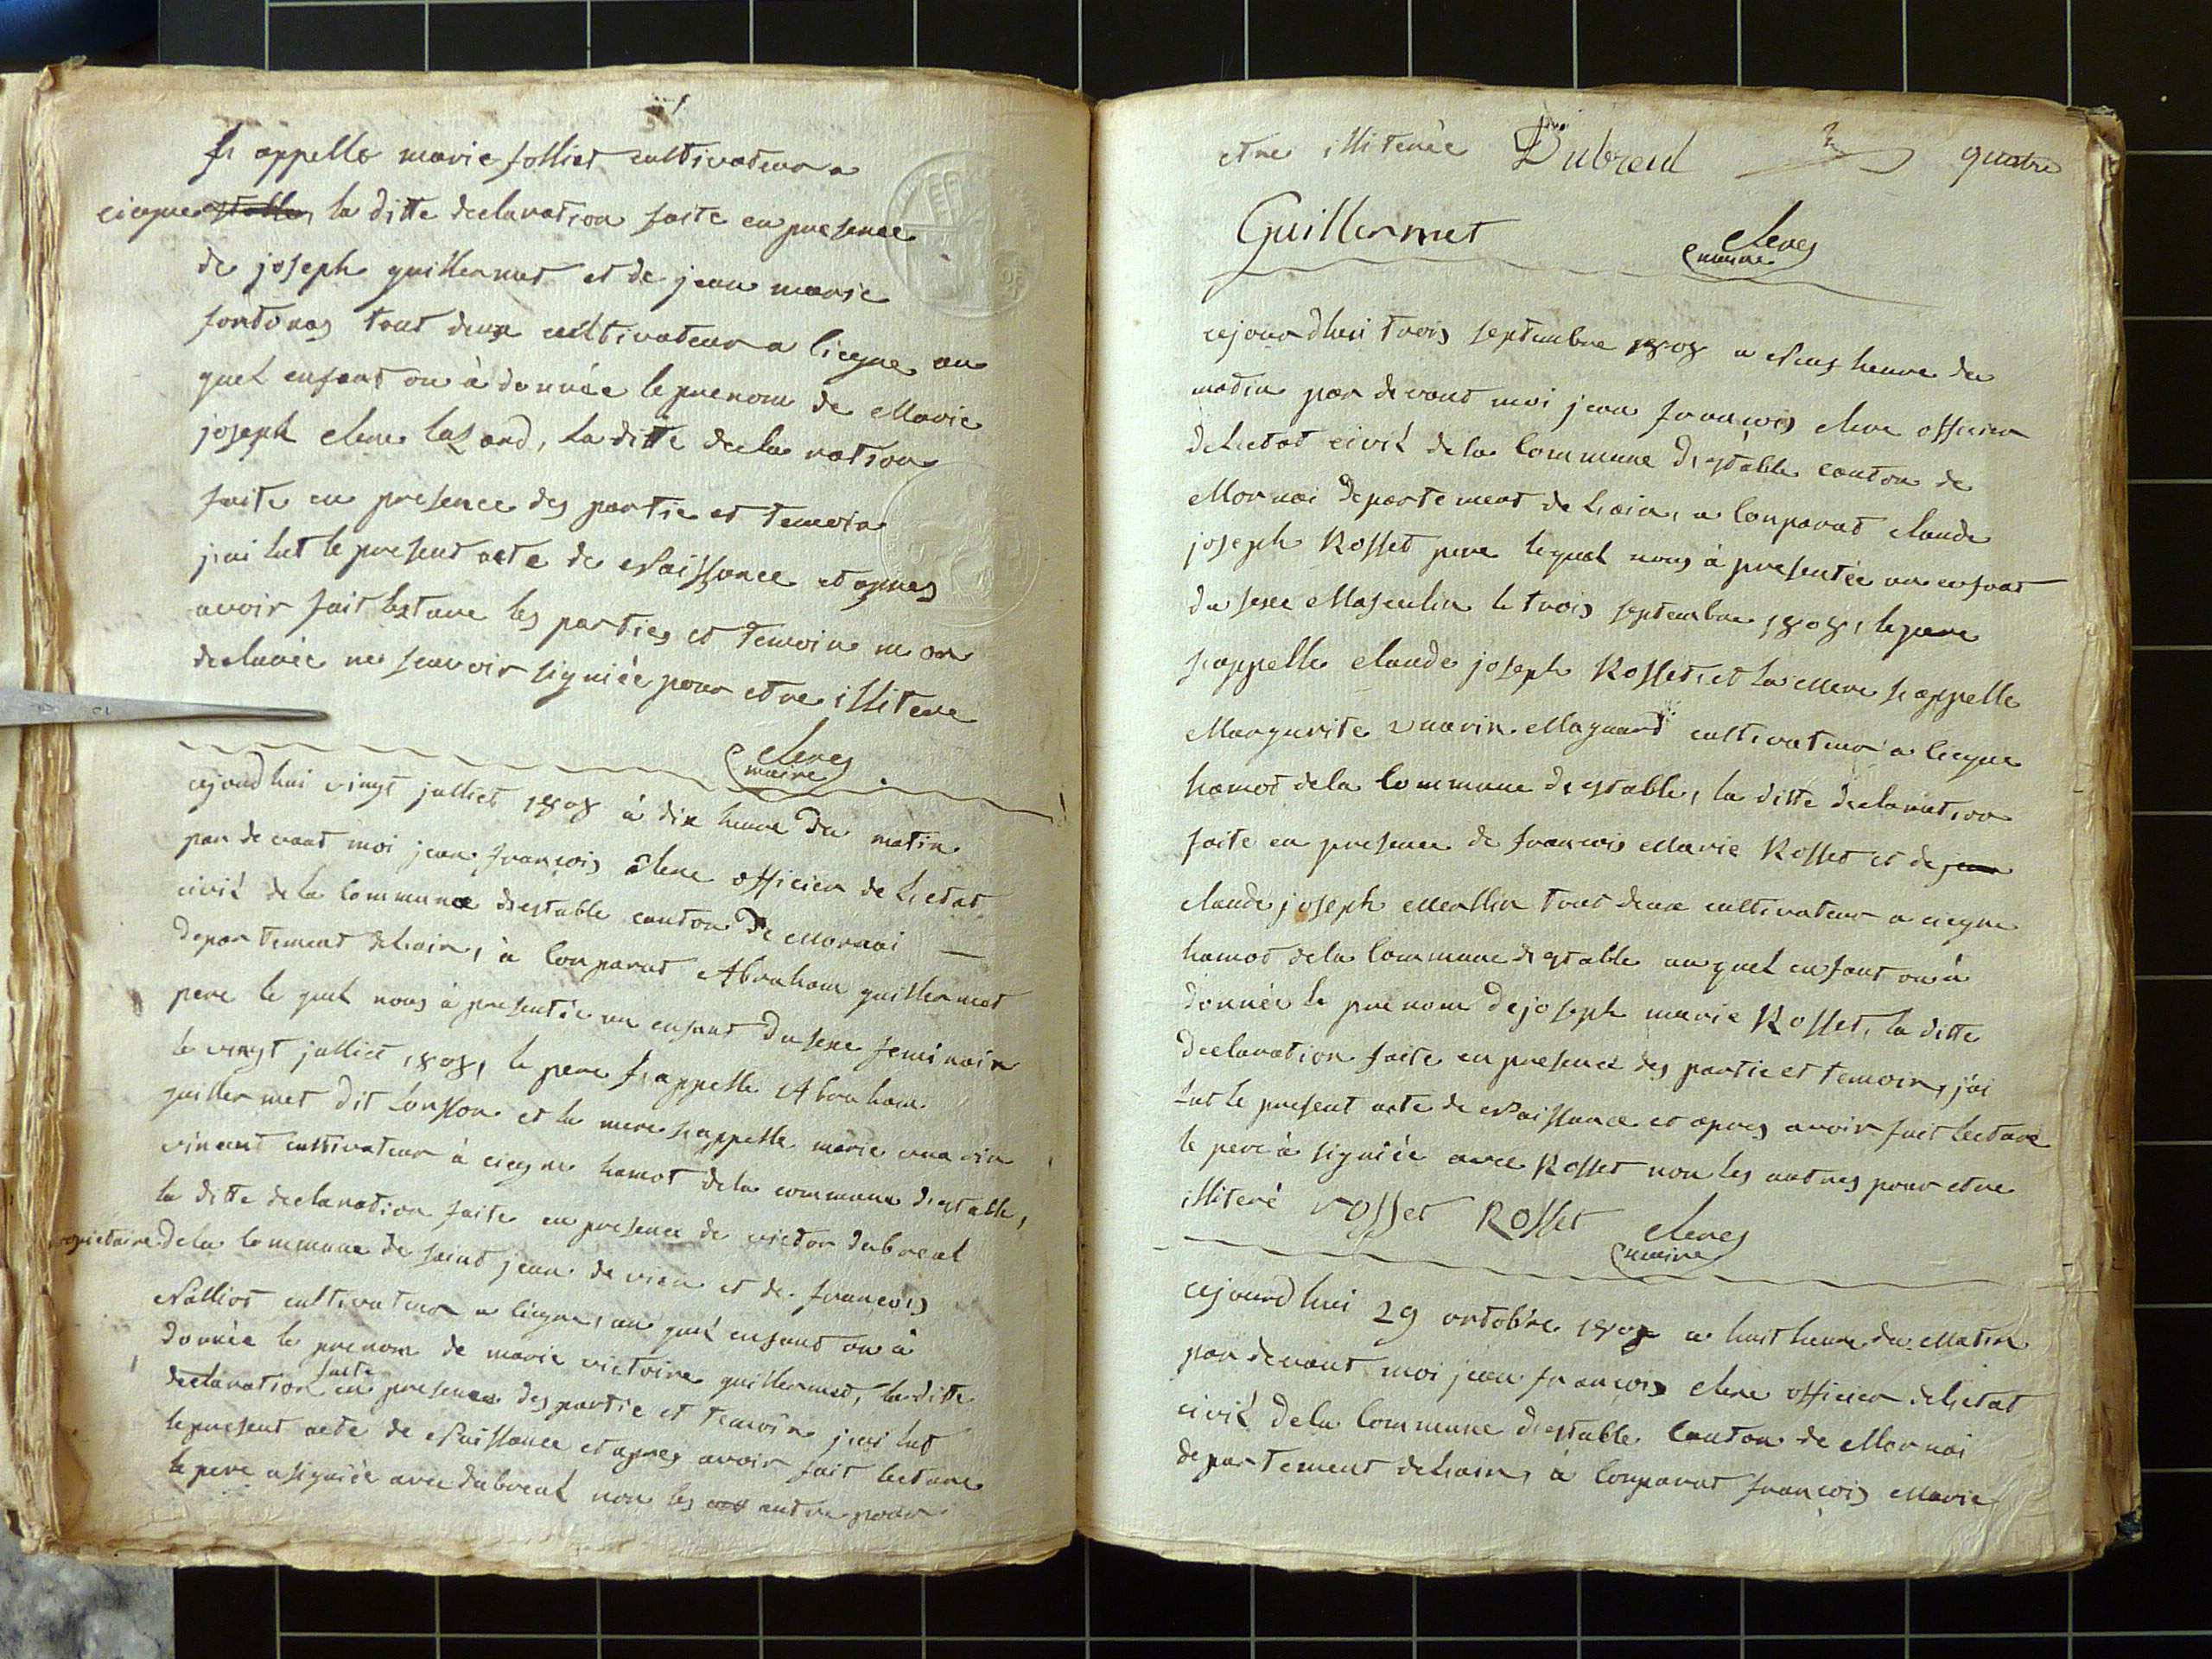 s'appelle marie jolliet cultivateur a
ciegne estables la ditte declaration faite en presence
de joseph guillermet et de jean marie
tout deux cultivateur a ciegne au
quel enfant on à donnée le prenom de Marie
joseph clerc lazard, la ditte declaration
faite en presence des partie et temoin
j'ai lut le present acte de Naissance et apres
avoir fait lecture les parties et temoin m'on
declarée ne scavoir signiée pour etre illitere
Clerc
maire
cejourdhui vingt julliet 1808 à dix heure du matin
par devant moi jean françois Clerc officier de l'etat
civil de la Commune d'estable canton de Mornai
departement de l'ain, à Comparut Abraham guillermet
pere le quel nous à presentée un enfant du sexe feminain
le vingt julliet 1808, le pere s'appelle Abraham
guillermet dit et la mere s'appelle marie
vincent cultivateur à ciegne hamot de la commune d'estable,
la ditte declaration faite en presence de victor dubreul
propietaire de la Commune de saint jean de vieu et de françois
Nalliot cultivateur a ciegne, au quel enfant on à
donnée le prenom de marie victoire guillermet, la ditte
declaration faite en presence des partie et temoin j'ai lut
le present acte de Naissance et apres avoir fait lecture
le pere a signiée avec dubreul non les autre pour
etre illiterée Dubreul 3 quatre
Guillermet Clerc
maire
cejourdhui trois septembre 1808 a Neuf heure du
matin par devant moi jean françois clerc officier
de l'etat civil de la Commune d'estable canton de
Mornai departement de l'ain, a Comparut claude
joseph Rosset pere lequel nous à presentée un enfant
du sexe Masculin le trois septembre 1808, le pere
s'appelle claude joseph Rosset, et la Mere s'appelle
Margurite Maguard cultivateur a ciegne
hamot de la Commune d'estable, la ditte declaration
faite en presence de francois Marie Rosset et de jean
claude joseph Merllin tout deux cultivateur a ciegne
hamot de la Commune d'estable au quel enfant on à
donnée le prenom de joseph marie Rosset, la ditte
declaration faite en presence des partie et temoin, j'ai
lut le present acte de Naissance et apres avoir fait lecture
le pere à signiée avec Rosset non les autres pour etre
illiteré rosset Rosset Clerc
maire
cejourdhui 29 octobre 1808 a huit heure du Matin
par devant moi jean françois clerc officier de l'etat
civil de la Commune d'estable Canton de Mornai
departement de l'ain, à Comparut françois Marie